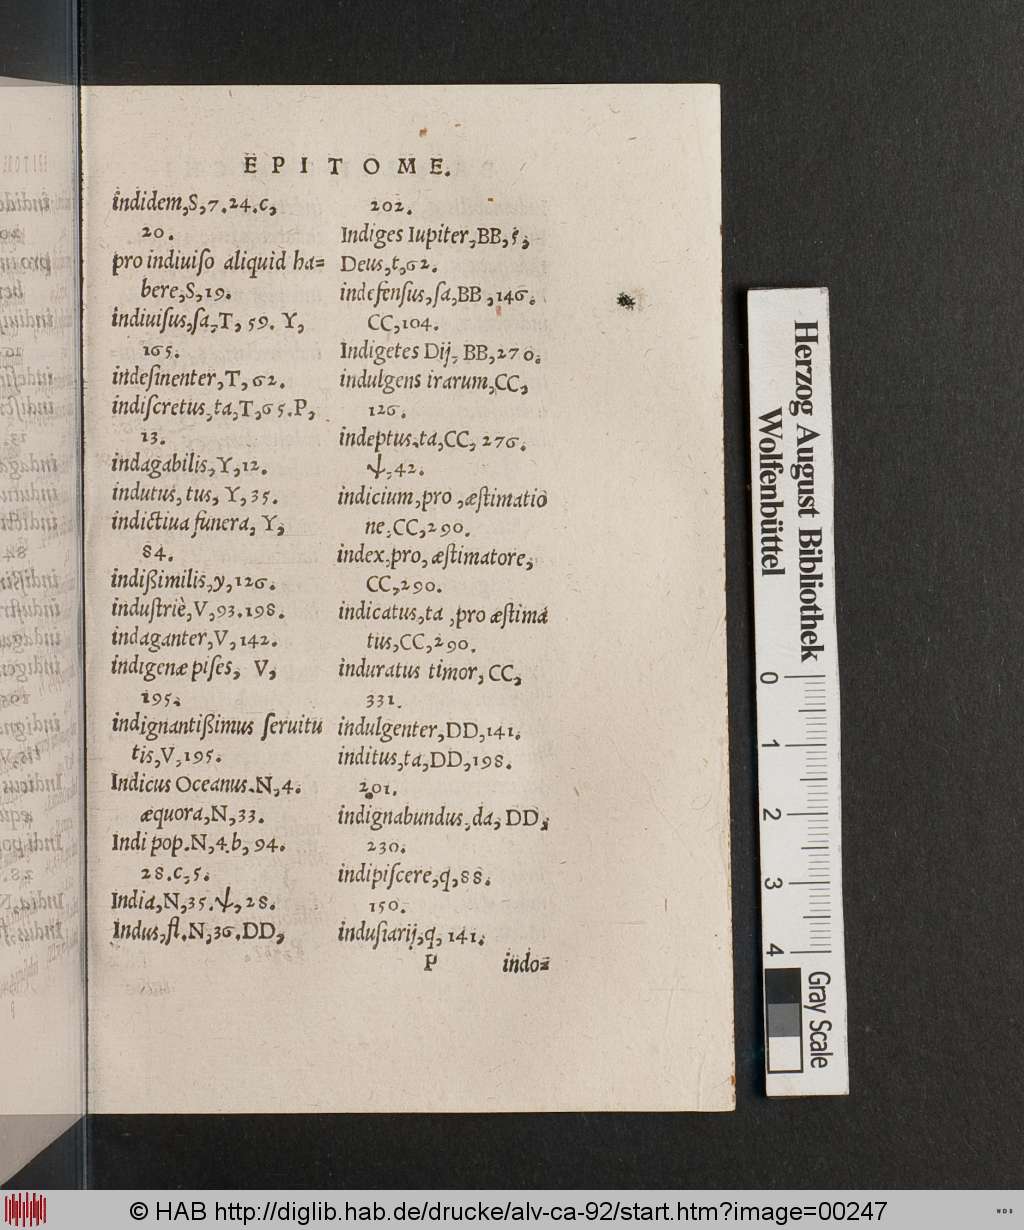 EPITOME.
indidem,S,7.24.c,
20.
pro indiuiſo aliquid ha=
bere,S,19.
indiuiſus,ſa,T, 59. Y,
165.
indeſinenter,T,62.
indiſcretus,ta,T,65.P,
13.
indagabilis,Y,12.
indutus, tus, Y, 35.
indictiua funera, Y,
84.
indißimilis,y,126.
induſtriè,V,93.198.
indaganter,V,142.
indigenæ piſes, V,
195.
indignantißimus ſeruitu
tis,V,195.
Indicus Oceanus.N,4.
æquora,N,33.
Indi pop.N,4.b, 94.
28.c,5.
India,N,35.ψ,28.
Indus,fl.N,36.DD,
202.
Indiges Iupiter,BB,5,
Deus,t,62.
indefenſus,ſa,BB,146.
CC,104.
Indigetes Dij, BB,270.
indulgens irarum,CC,
126.
indeptus,ta,CC, 276.
ψ,42.
indicium,pro ,æſtimatio
ne,CC,290.
index,pro, æſtimatore,
CC,290.
indicatus,ta ,pro æſtima
tus,CC,290.
induratus timor, CC,
331.
indulgenter,DD,141.
inditus,ta,DD,198.
201.
indignabundus,da, DD,
230.
indipiſcere,q,88.
150.
induſiarij,q, 141.
P indo=
Herzog August Bibliothek
Wolfenbüttel
0 1 2 3 4
Gray Scale
© HAB http://diglib.hab.de/drucke/alv-ca-92/start.htm?image=00247